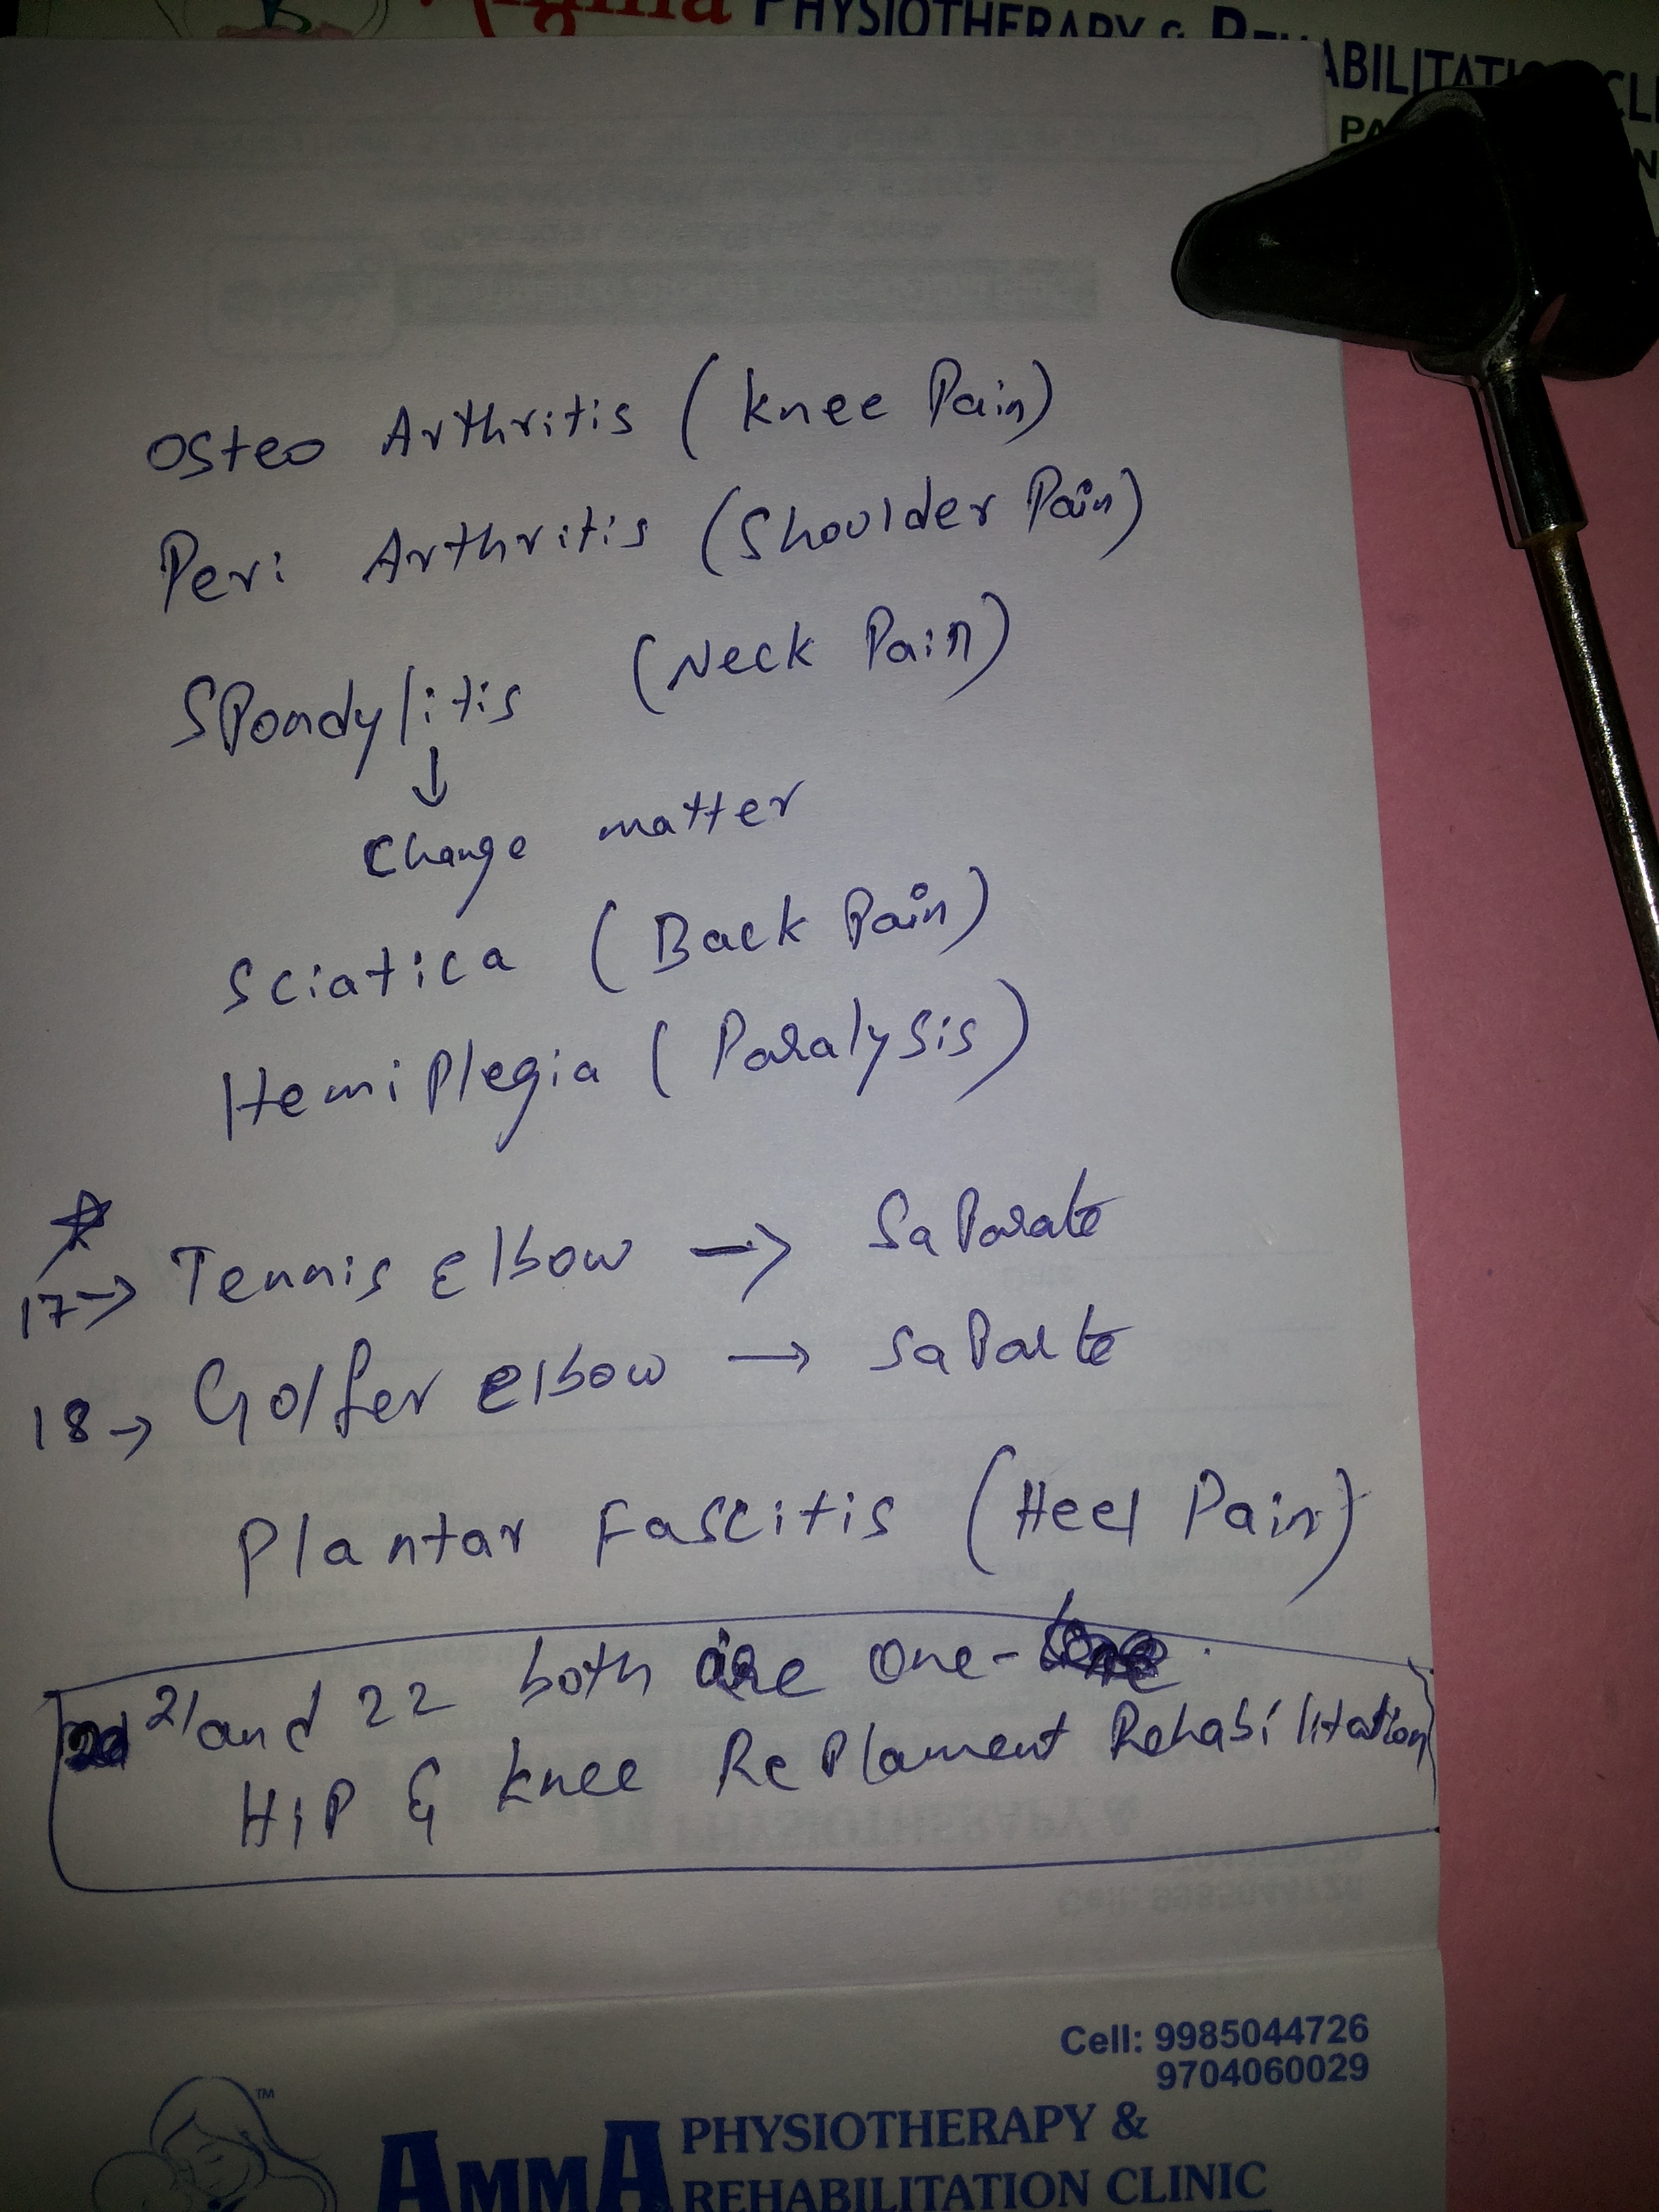 PHYSIOTHERAPY & REHABILITATION CLI
PA
Osteo Arthritis (knee Pain)
Peri Arthritis (Shoulder Pain)
Spondylitis (Neck Pain)
↓
Change matter
Sciatica (Back Pain)
Hemiplegia (Paralysis)
17→ Tennis elbow → Saparate
18→ Golfer elbow → Saparte
Plantar Fascitis (Heel Pain)
21 and 22 both are one-
Hip & knee Replament Rehabilitation
Cell: 9985044726
9704060029
TM
AMMA PHYSIOTHERAPY &
REHABILITATION CLINIC